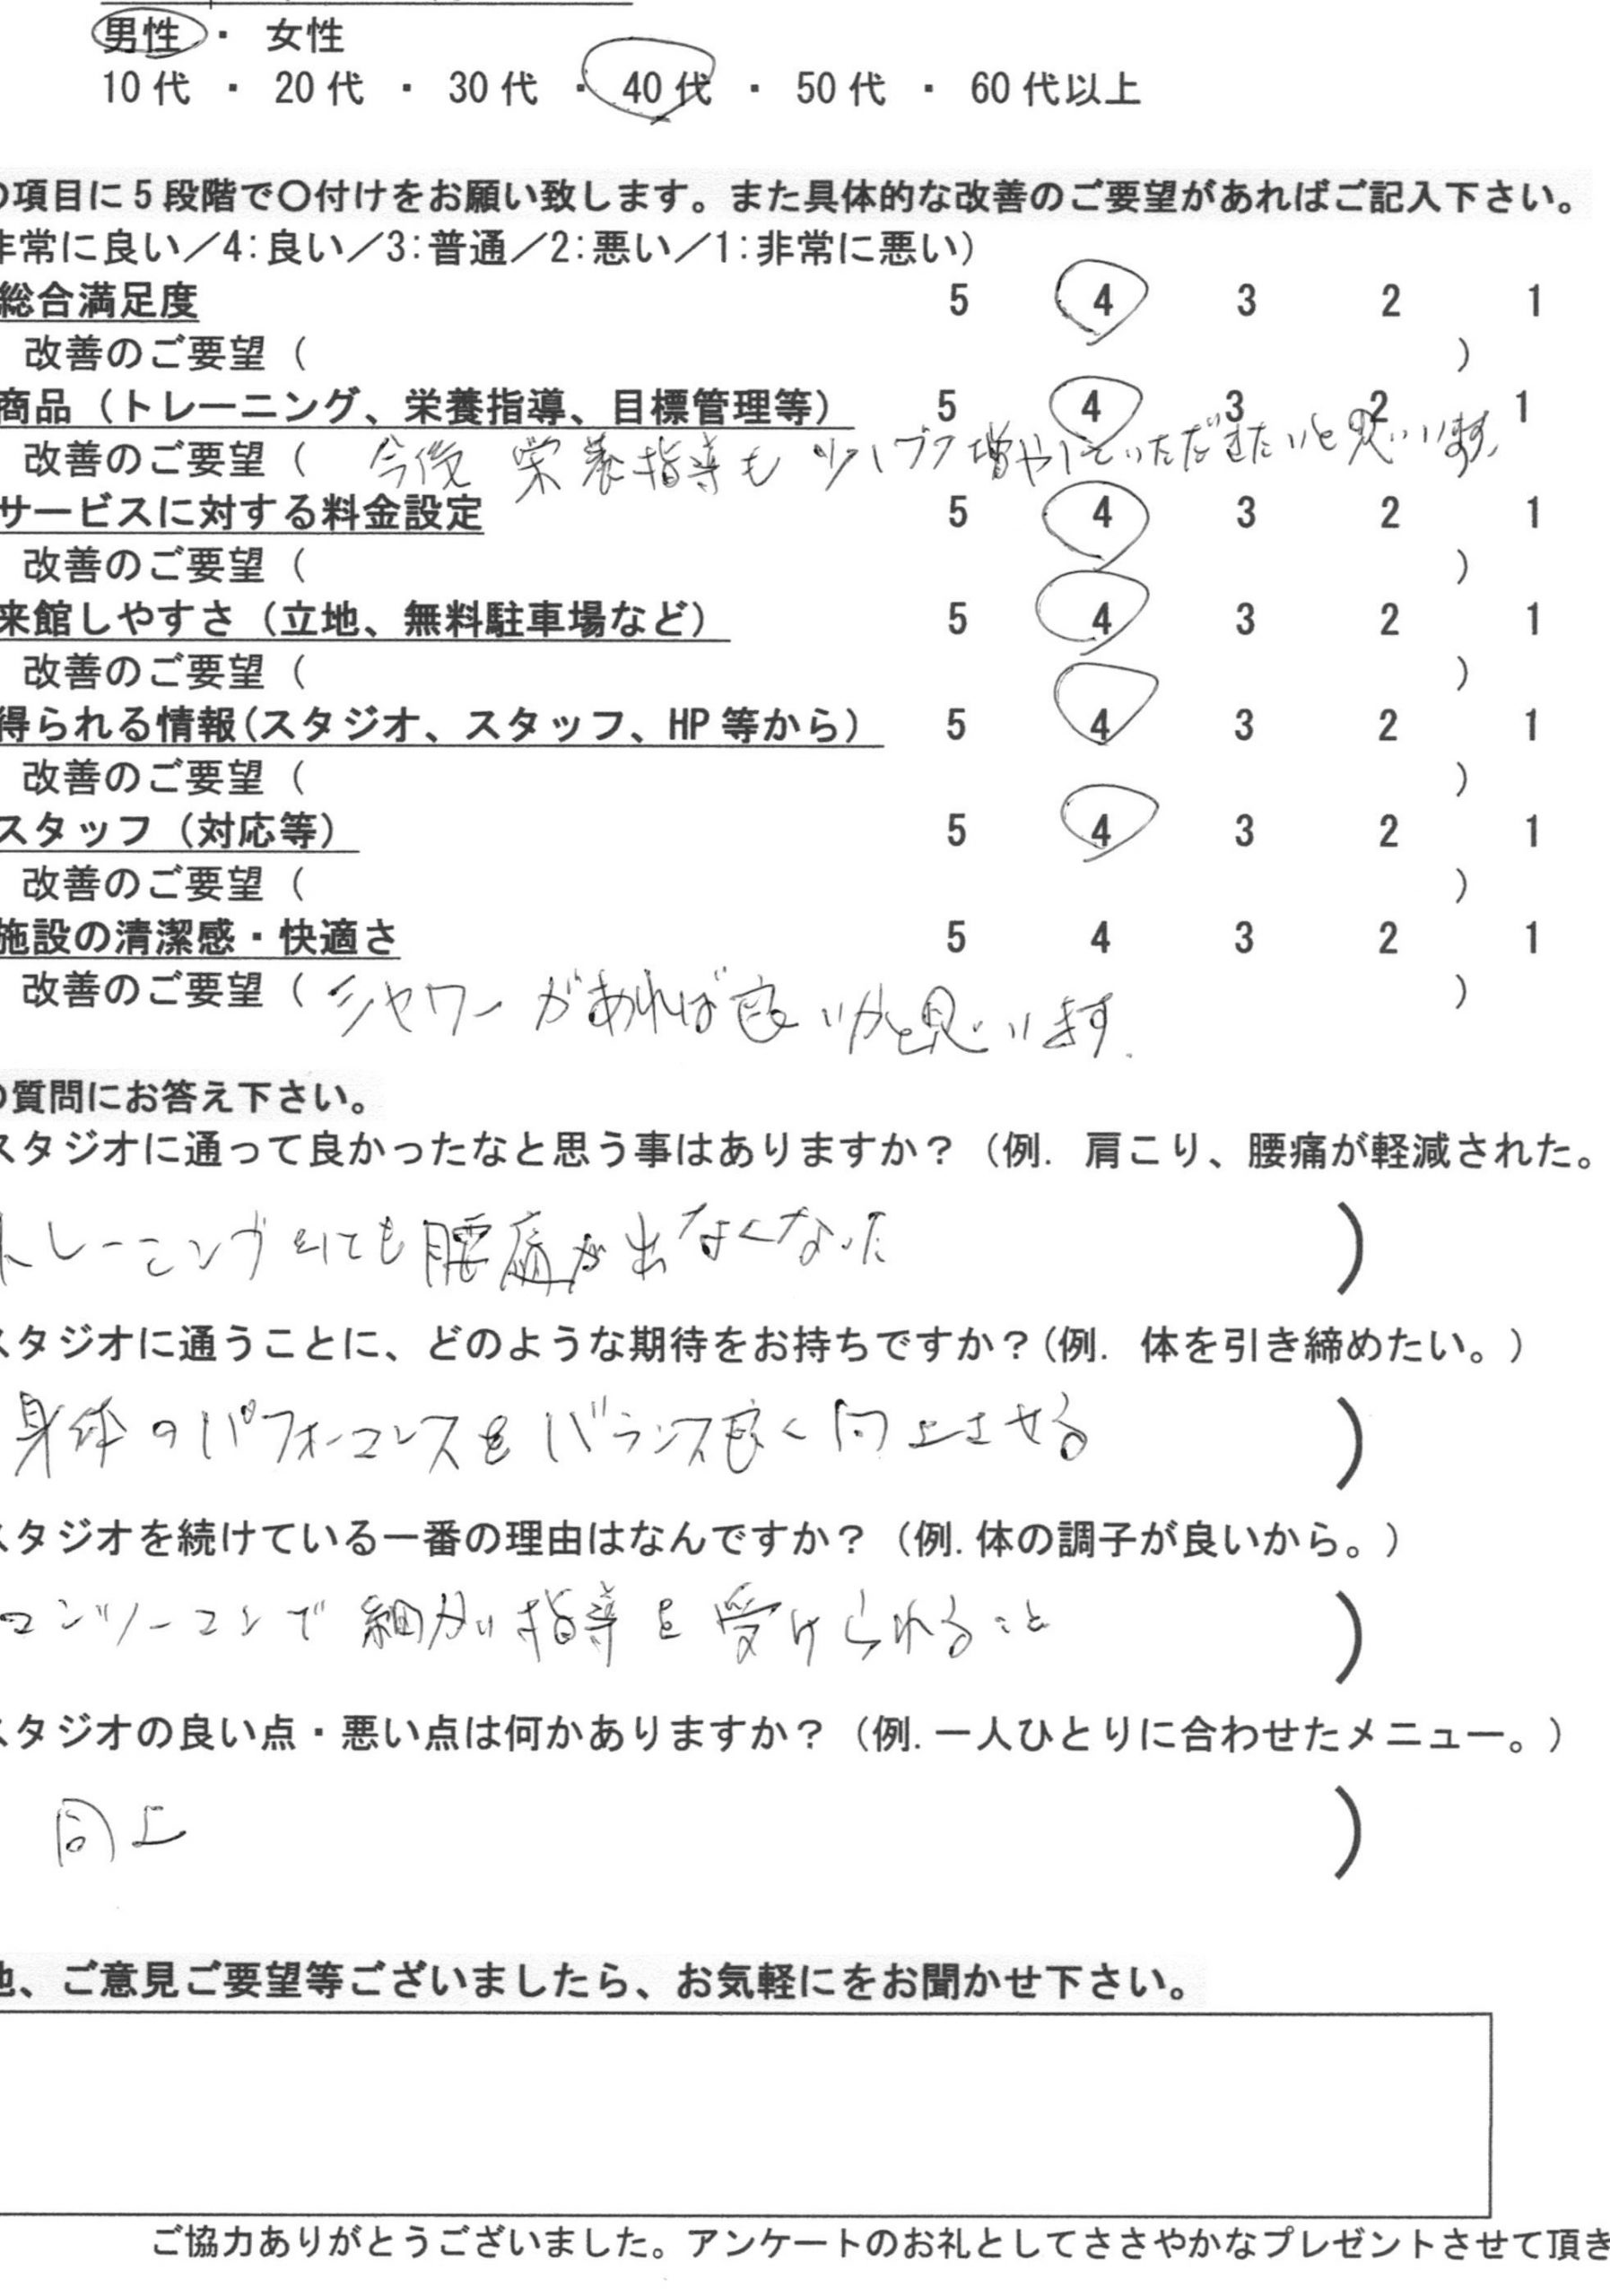 男性 ・ 女性
10代 ・ 20代 ・ 30代 ・ 40代 ・ 50代 ・ 60代以上
の項目に5段階で〇付けをお願い致します。また具体的な改善のご要望があればご記入下さい。
非常に良い／4:良い／3:普通／2:悪い／1:非常に悪い）
総合満足度 5 4 3 2 1
改善のご要望（ ）
商品（トレーニング、栄養指導、目標管理等） 5 4 3 2 1
改善のご要望（ 今後 栄養指導も 少しづつ増やしていただきたいと思います。
サービスに対する料金設定 5 4 3 2 1
改善のご要望（ ）
来館しやすさ（立地、無料駐車場など） 5 4 3 2 1
改善のご要望（ ）
得られる情報(スタジオ、スタッフ、HP等から） 5 4 3 2 1
改善のご要望（ ）
スタッフ（対応等） 5 4 3 2 1
改善のご要望（ ）
施設の清潔感・快適さ 5 4 3 2 1
改善のご要望（ シャワーがあれば良いかと思います. ）
の質問にお答え下さい。
スタジオに通って良かったなと思う事はありますか？（例. 肩こり、腰痛が軽減された。
トレーニングをしても腰痛が出なくなった ）
スタジオに通うことに、どのような期待をお持ちですか？(例. 体を引き締めたい。）
身体のパフォーマンスをバランス良く向上させる ）
スタジオを続けている一番の理由はなんですか？（例.体の調子が良いから。）
マンツーマンで細かい指導を受けられること ）
スタジオの良い点・悪い点は何かありますか？（例.一人ひとりに合わせたメニュー。）
同上 ）
他、ご意見ご要望等ございましたら、お気軽にをお聞かせ下さい。
ご協力ありがとうございました。アンケートのお礼としてささやかなプレゼントさせて頂き